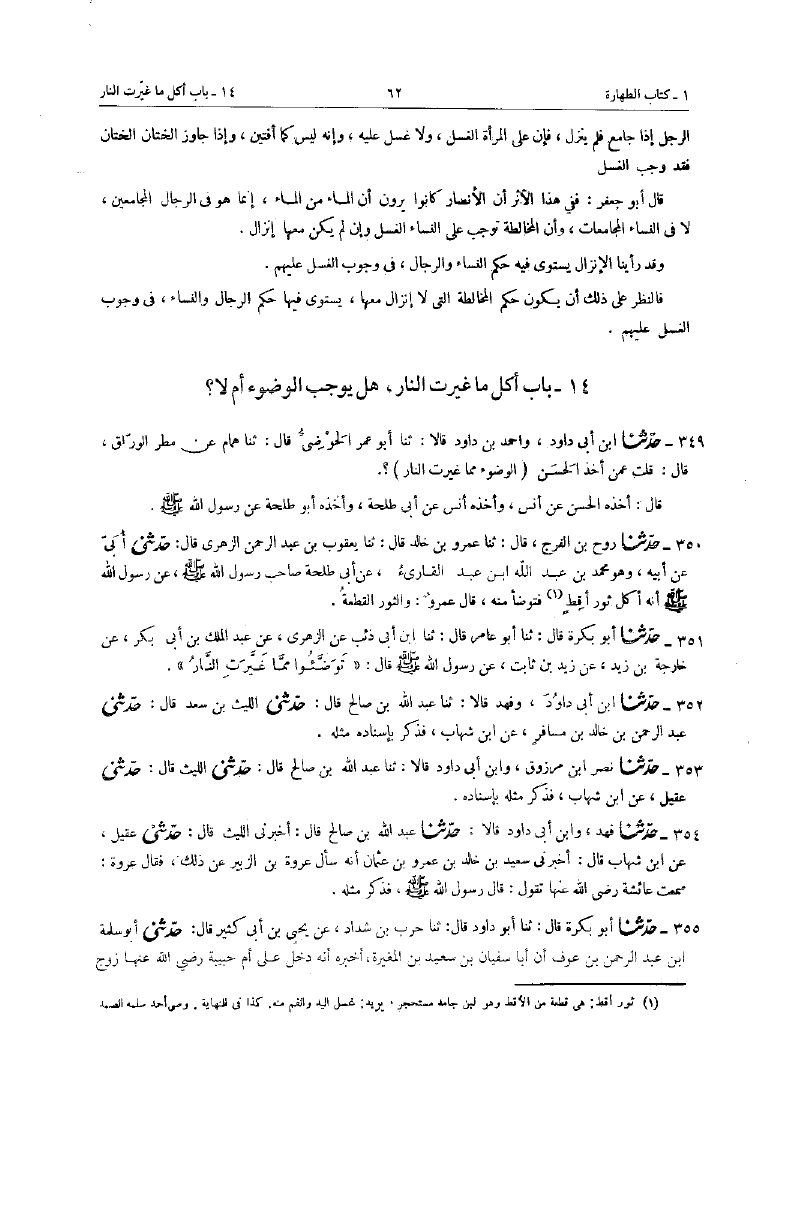 ١ ـ كتاب الطهارة ٦٢ ١٤ ـ باب أكل ما غيّرت النار
الرجل إذا جامع فلم ينزل ، فإن على المرأة الغسل ، ولا غسل عليه ، وإنه ليس كما أفتين ، وإذا جاوز الختان الختان
فقد وجب الغسل
قال أبو جعفر : ففي هذا الأثر أن الأنصار كانوا يرون أن الماء من الماء ، إنما هو فى الرجال المجامعين ،
لا فى النساء المجامعات ، وأن المخالطة توجب على النساء الغسل وإن لم يكن معها إنزال .
وقد رأينا الإنزال يستوى فيه حكم النساء والرجال ، فى وجوب الغسل عليهم .
فالنظر على ذلك أن يكون حكم المخالطة التى لا إنزال معها ، يستوى فيها حكم الرجال والنساء ، فى وجوب
الغسل عليهم .
١٤ ـ باب أكل ما غيرت النار، هل يوجب الوضوء أم لا؟
٣٤٩ ـ حدّثنا ابن أبى داود ، واحمد بن داود قالا : ثنا أبو عمر الحَوْضِىُّ قال : ثنا همام عن مطر الورّاق ،
قال : قلت عمن أخذ الحَسَن ( الوضوء مما غيرت النار ) ؟.
قال : أخذه الحسن عن أنس ، وأخذه أنس عن أبى طلحة ، وأخذه أبو طلحة عن رسول الله ﷺ .
٣٥٠ ـ حدّثنا روح بن الفرج ، قال : ثنا عمرو بن خالد قال : ثنا يعقوب بن عبد الرحمن الزهرى قال: حدّثنى أُبىّ
عن أبيه ، وهو محمد بن عبد الله ابن عبد القارىء ، عن أبي طلحة صاحب رسول الله ﷺ ، عن رسول الله
ﷺ أنه أكل ثور أقِطٍ (١) فتوضأ منه ، قال عمرو : والثور القطعة .
٣٥١ ـ حدّثنا أبو بكرة قال : ثنا أبو عامر قال : ثنا ابن أبى ذئب عن الزهرى ، عن عبد الملك بن أبى بكر ، عن
خارجة بن زيد ، عن زيد بن ثابت ، عن رسول الله ﷺ قال : « تَوَضَّئُوا مِمَّا غَيَّرَتِ النَّارُ » .
٣٥٢ ـ حدّثنا ابن أبى داوُدَ ، وفهد قالا : ثنا عبد الله بن صالح قال : حدّثنى الليث بن سعد قال : حدّثنى
عبد الرحمن بن خالد بن مسافر ، عن ابن شهاب ، فذكر بإسناده مثله .
٣٥٣ ـ حدّثنا نصر ابن مرزوق ، وابن أبى داود قالا : ثنا عبد الله بن صالح قال : حدّثنى الليث قال : حدّثنى
عقيل ، عن ابن شهاب ، فذكر مثله بإسناده .
٣٥٤ ـ حدّثنا فهد ، وابن أبى داود قالا : حدّثنا عبد الله بن صالح قال : أخبرنى الليث قال : حدّثنى عقيل ،
عن ابن شهاب قال : أخبرنى سعيد بن خالد بن عمرو بن عثمان أنه سأل عروة بن الزبير عن ذلك ، فقال عروة :
سمعت عائشة رضى الله عنها تقول : قال رسول الله ﷺ ، فذكر مثله .
٣٥٥ ـ حدّثنا أبو بكرة قال : ثنا أبو داود قال: ثنا حرب بن شداد ، عن يحيى بن أبى كثير قال: حدّثنى أبو سلمة
ابن عبد الرحمن بن عوف أن أبا سفيان بن سعيد بن المغيرة، أخبره أنه دخل على أم حبيبة رضي الله عنها زوج
(١) ثور أقط: هى قطعة من الأقط وهو لبن جامد مستحجر ، يريد: غسل اليد والفم منه. كذا فى النهاية . وصى أحمد سلمه الصمد